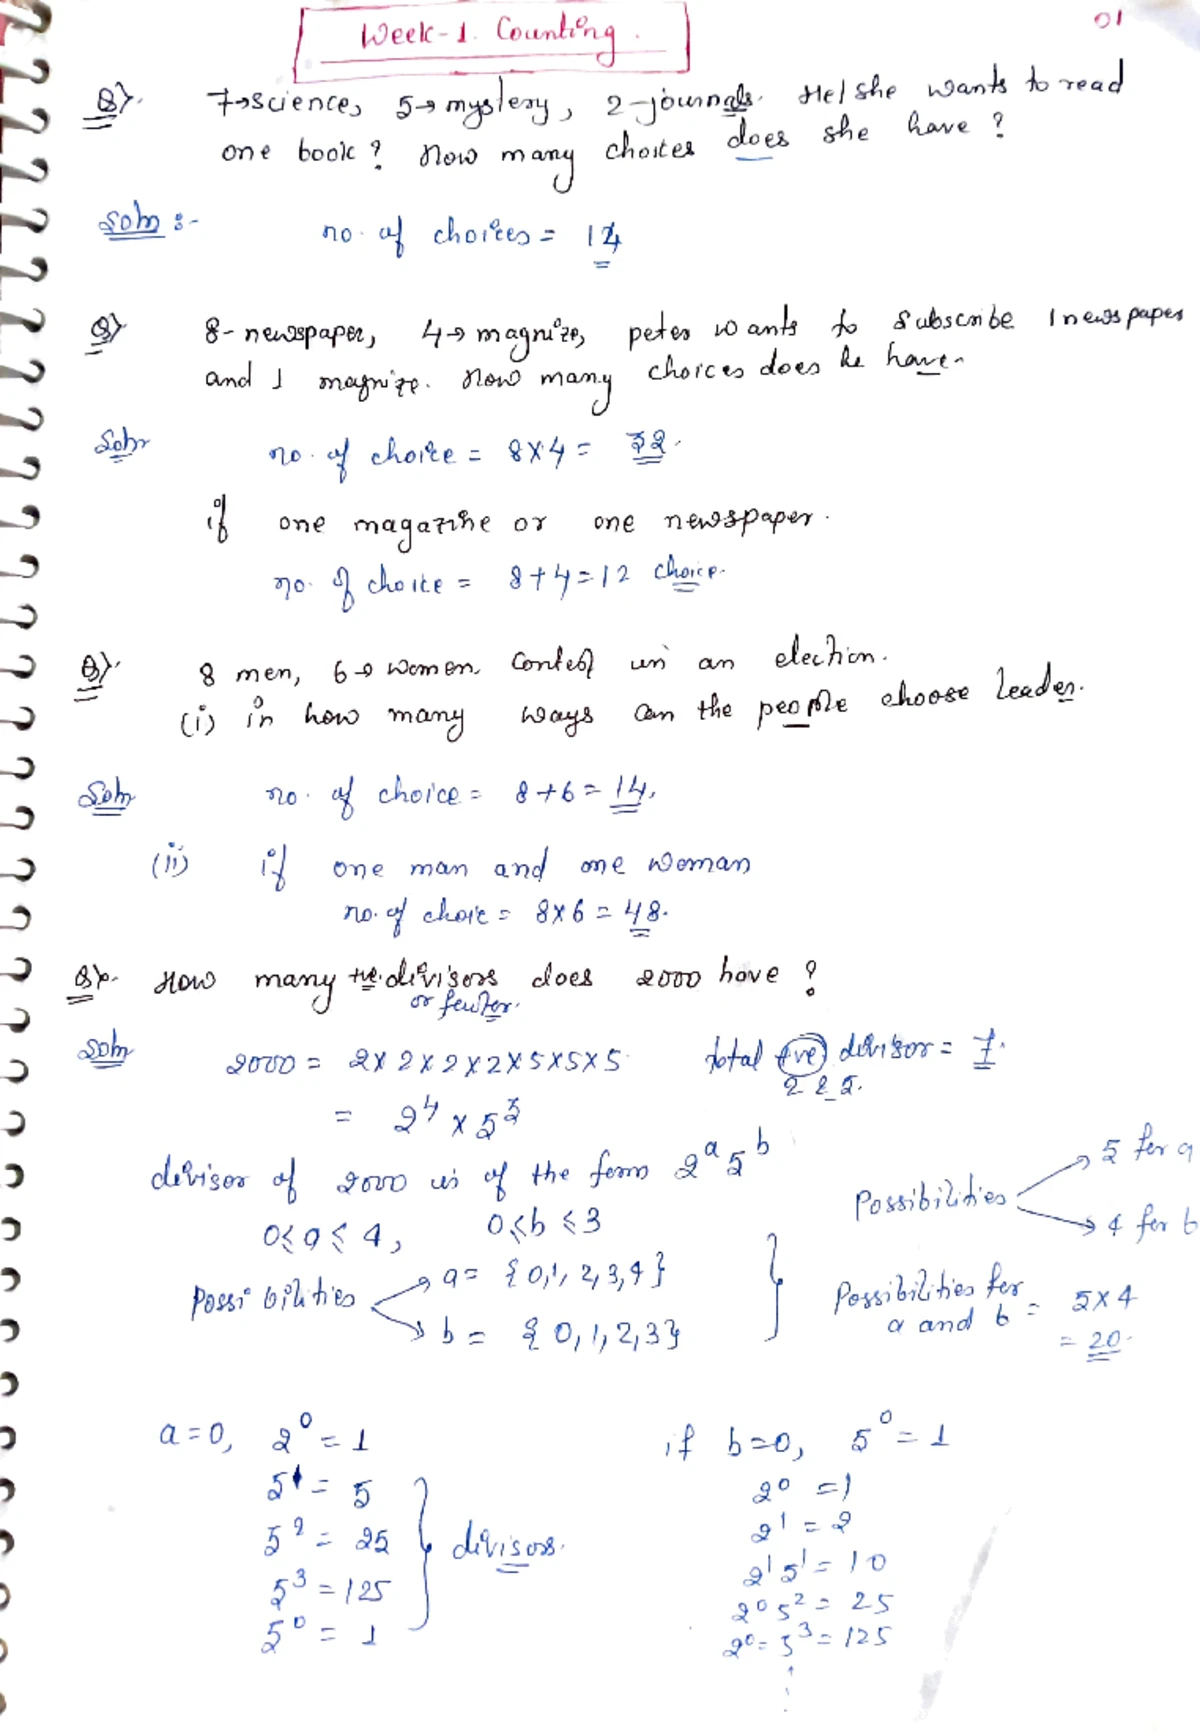 Week-1. Counting.
01
Q}. 7→science, 5→mystery, 2-journals. He/she wants to read
one book? How many choites does she have?
Soln :- no. of choices = 14
Q} 8-newspaper, 4→magnize, peter wants to subscribe 1 newspaper
and 1 magnize. How many choices does he have.
Soln no. of choice = 8×4 = 32.
if one magazine or one newspaper.
no. of choice = 8+4=12 choice.
Q}. 8 men, 6→women. Contest in an election.
(i) in how many ways can the people choose leader.
Soln no. of choice = 8+6=14.
(ii) if one man and one woman
no. of choice = 8×6=48.
Q}. How many +ve.divisors does 2000 have?
or fewter.
Soln 2000 = 2×2×2×2×5×5×5 total +ve divisor = 7.
2 & 5.
= 2⁴ × 5³
divisor of 2000 is of the form 2ᵃ5ᵇ
0≤a≤4, 0≤b≤3
Possibilities 5 for a
4 for b
Possibilities a= {0,1,2,3,4}
b= {0,1,2,3}
Possibilities for a and b = 5×4
= 20.
a=0, 2⁰=1
5¹=5
5²=25
5³=125
5⁰=1
divisors.
if b=0, 5⁰=1
2⁰=1
2¹=2
2¹5¹=10
2⁰5²=25
2⁰=5³=125